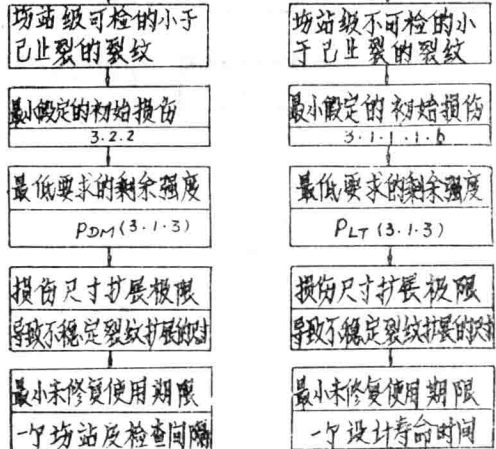 场站级可检的小于
已止裂的裂纹
最小假定的初始损伤
3.2.2
最低要求的剩余强度
PDM(3.1.3)
损伤尺寸扩展极限
导致不稳定裂纹扩展的尺寸
最小未修复使用期限
一个场站级检查间隔
场站级不可检的小
于已止裂的裂纹
最小假定的初始损伤
3.1.1.1.b
最低要求的剩余强度
PLT(3.1.3)
损伤尺寸扩展极限
导致不稳定裂纹扩展的尺寸
最小未修复使用期限
一个设计寿命时间